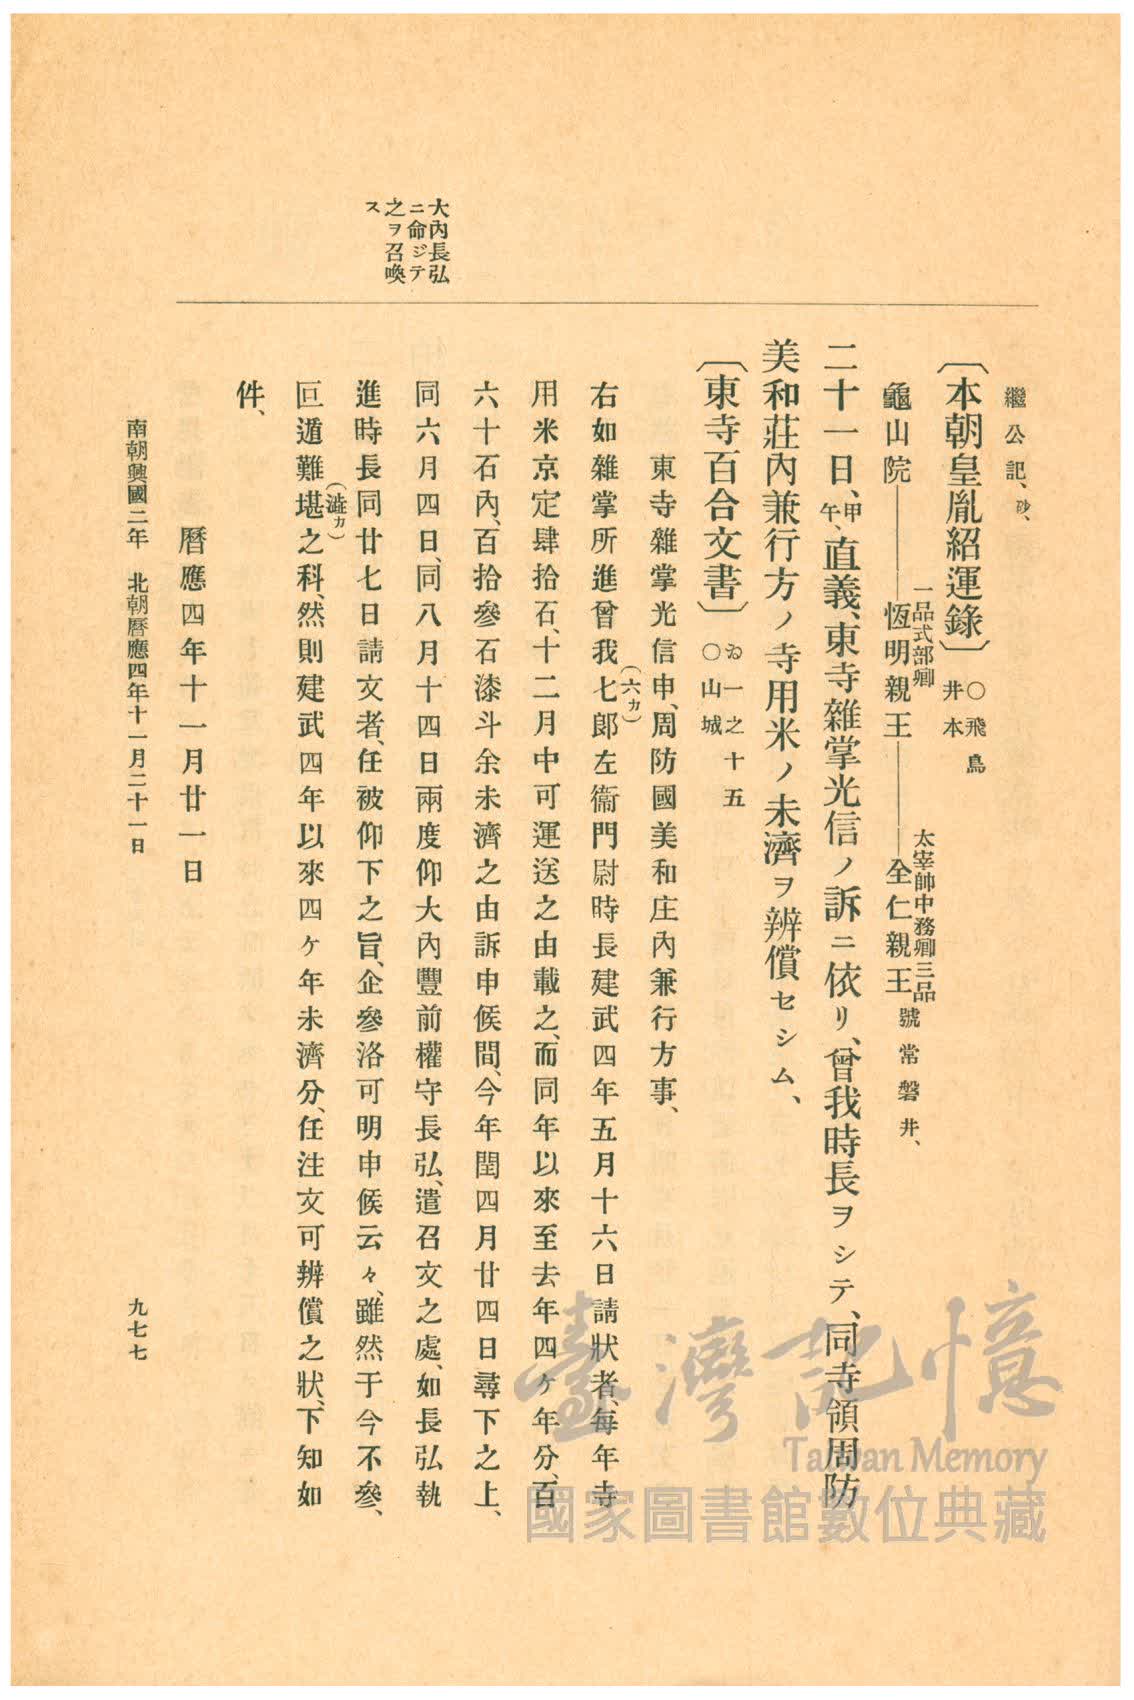 繼公記、砂、
〔本朝皇胤紹運錄〕 ○飛鳥
井本
一品式部卿 太宰帥中務卿三品
龜山院――恆明親王――全仁親王號常磐井、
二十一日、甲午、直義、東寺雜掌光信ノ訴ニ依リ、曾我時長ヲシテ、同寺領周防
美和莊內兼行方ノ寺用米ノ未濟ヲ辨償セシム、
〔東寺百合文書〕 ゐ一之十五
○山城
東寺雜掌光信申、周防國美和庄內兼行方事、
(六カ)
右如雜掌所進曾我七郞左衞門尉時長建武四年五月十六日請狀者、每年寺
用米京定肆拾石、十二月中可運送之由載之、而同年以來至去年四ケ年分、百
六十石內、百拾參石漆斗余未濟之由訴申候間、今年閏四月廿四日尋下之上、
同六月四日、同八月十四日兩度仰大內豐前權守長弘、遣召文之處、如長弘執
進時長同廿七日請文者、任被仰下之旨、企參洛可明申候云々、雖然于今不參、
(澁カ)
叵遁難堪之科、然則建武四年以來四ケ年未濟分、任注文可辨償之狀、下知如
件、
曆應四年十一月廿一日
大內長弘
ニ命ジテ
之ヲ召喚
ス
南朝興國二年 北朝曆應四年十一月二十一日
九七七
臺灣記憶
Taiwan Memory
國家圖書館數位典藏